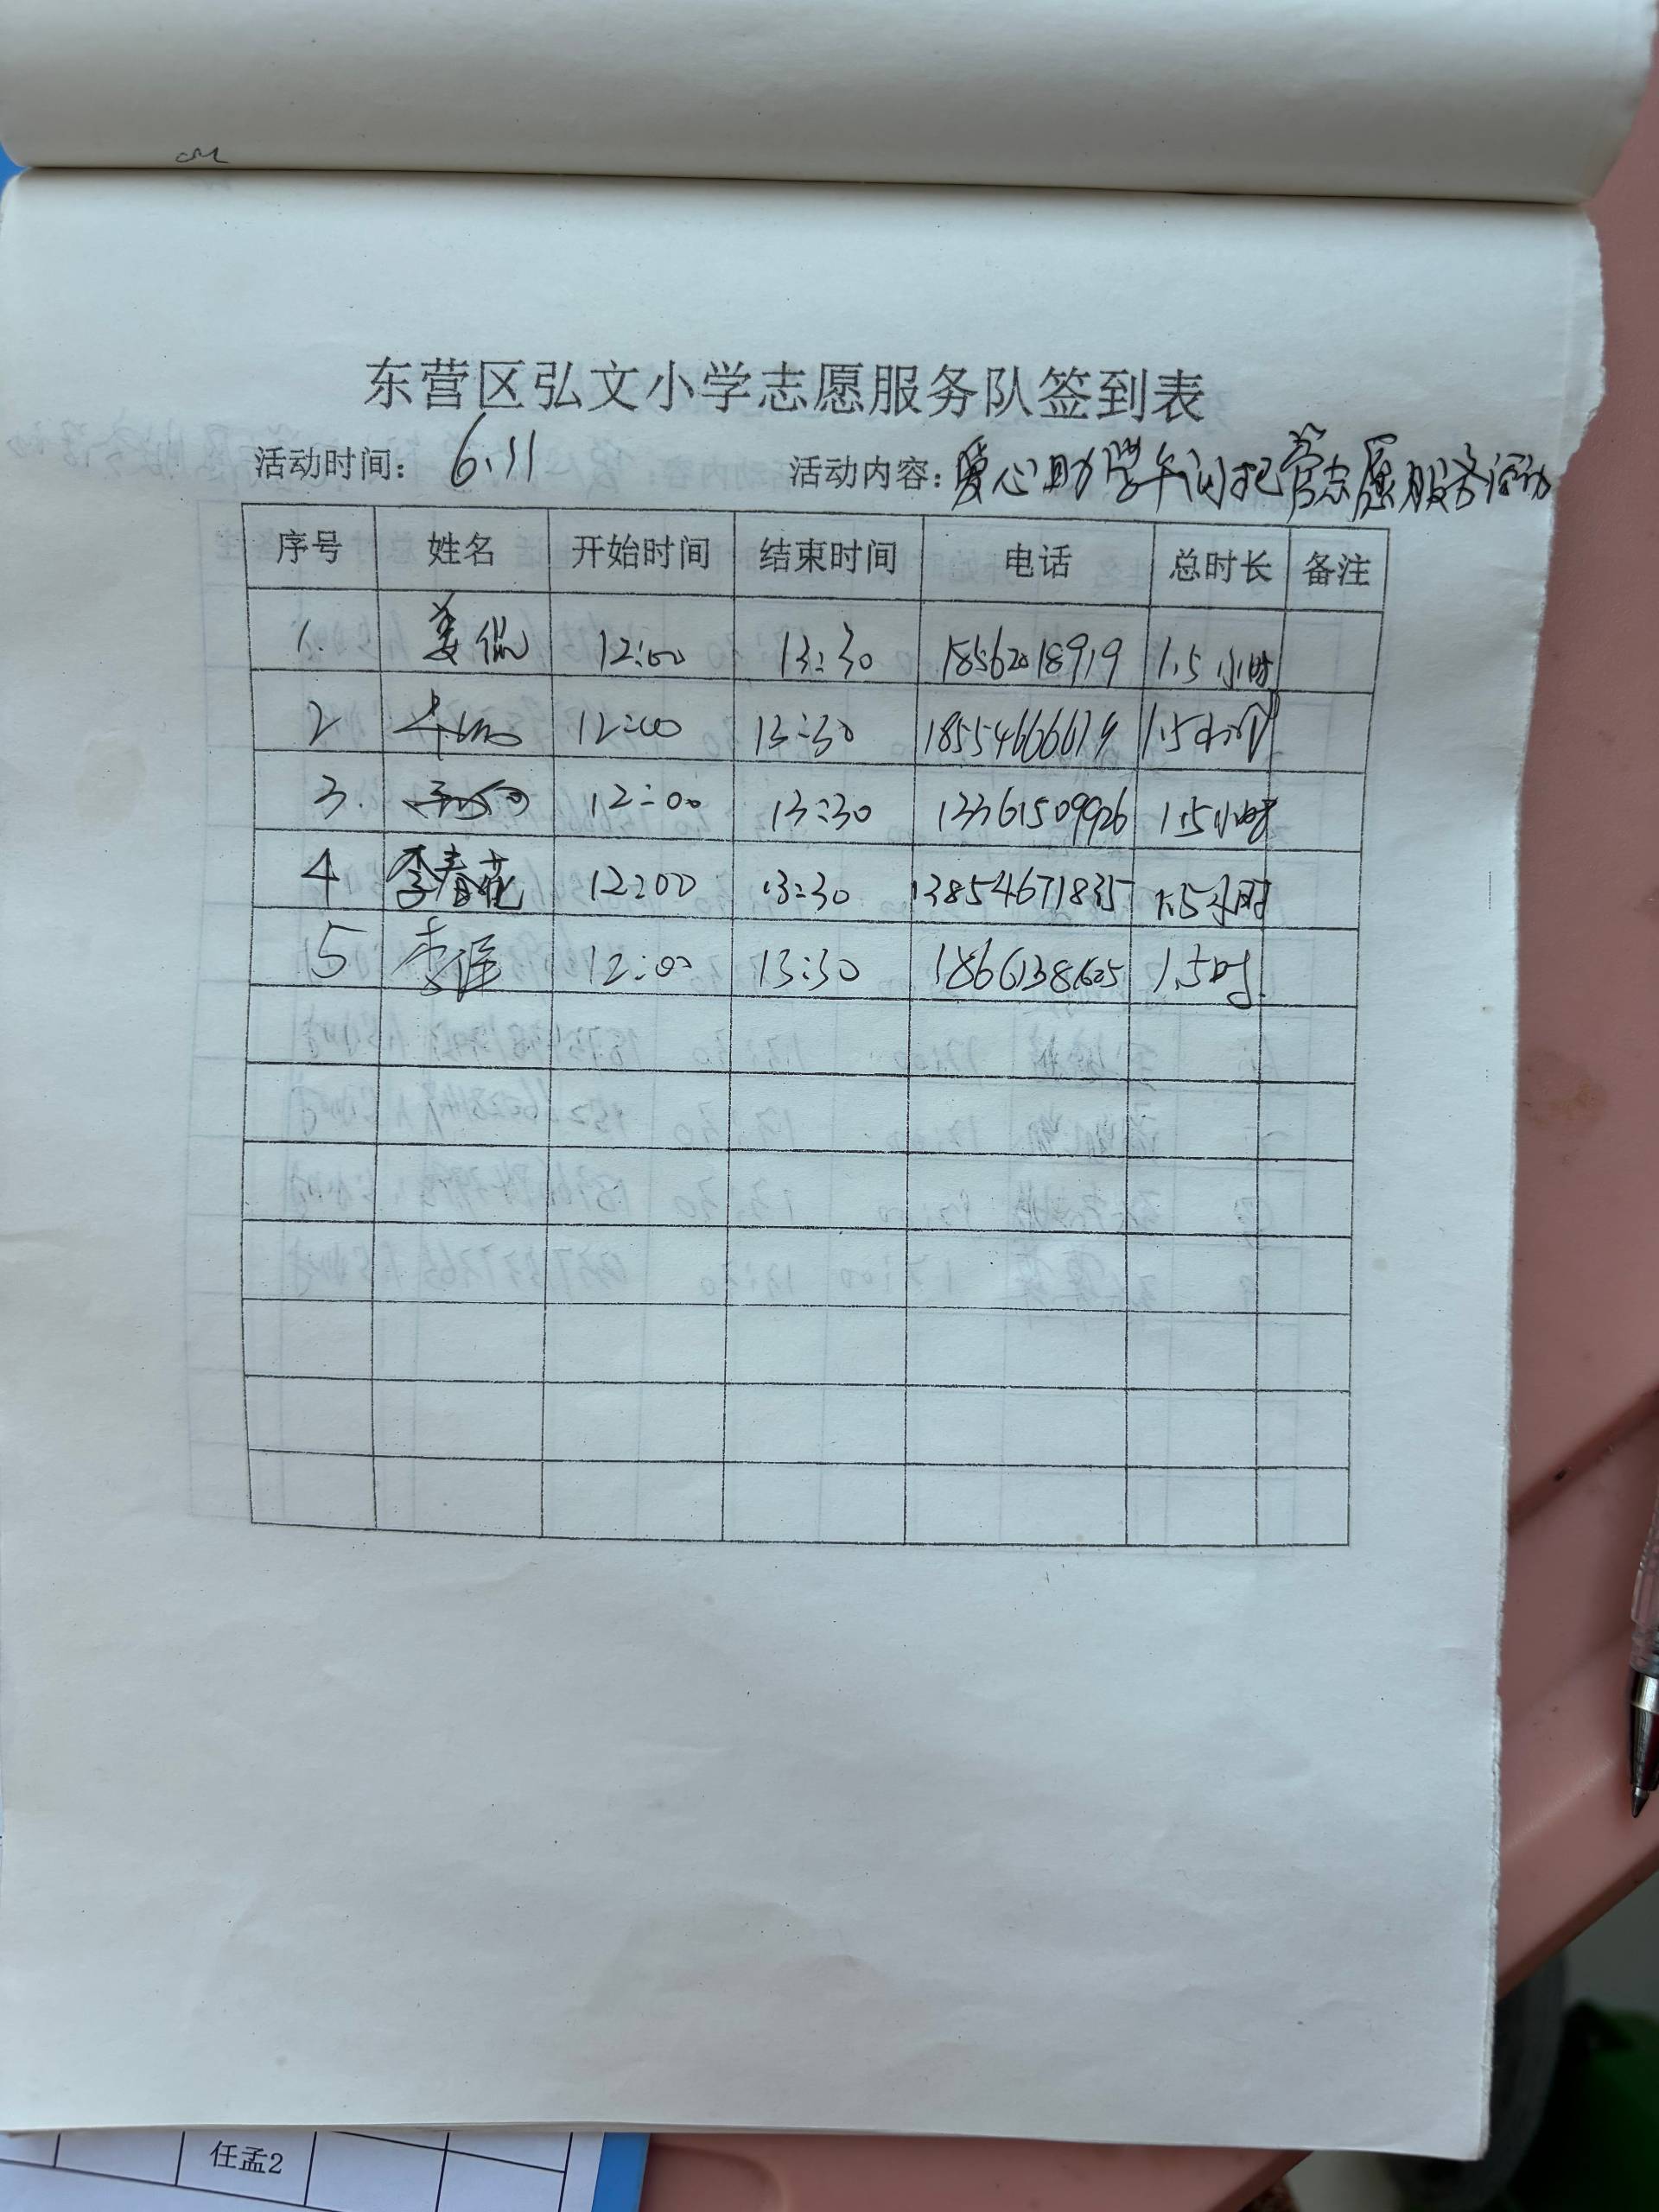 东营区弘文小学志愿服务队签到表
活动时间： 6.11 活动内容：爱心助学午间托管志愿服务活动
序号 姓名 开始时间 结束时间 电话 总时长 备注
1. 姜侃 12:00 13:30 18562018919 1.5小时
2 12:00 13:30 18554666619 1.5小时
3. 12:00 13:30 13361509926 1.5小时
4 李春花 12:00 13:30 13854671835 1.5小时
5 李 12:00 13:30 18661381605 1.5时
任孟2